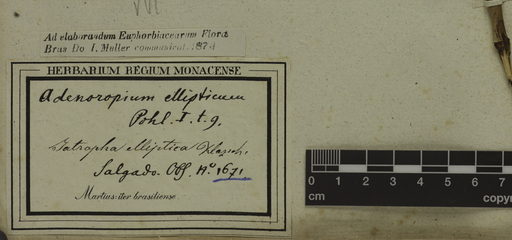 Ad elaborandum Euphorbiacearum Florae
Bras Do I. Müller communicat. 187
HERBARIUM REGIUM MONACENSE
Adenoropium ellipticum
Pohl. I. t. 9.
Jatropha elliptica
Salgado. Off. No 1671
Martius: iter brasiliense.
0 1 2 3 4 5 6 7
cm
copy